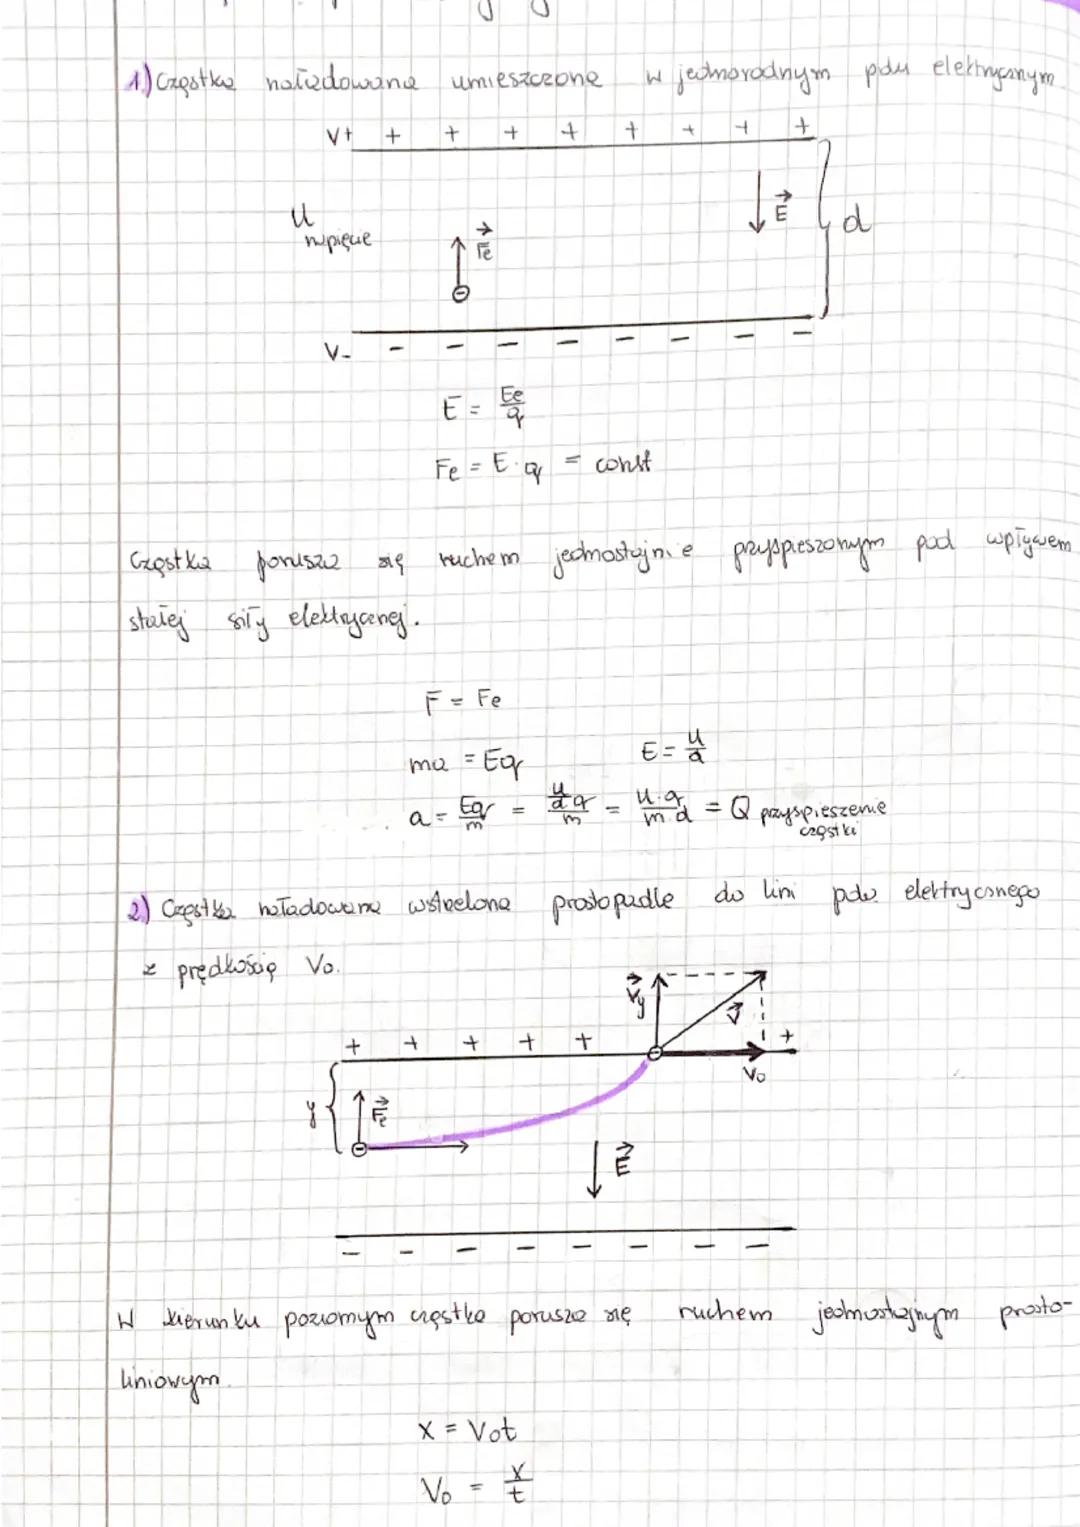 1.) Cząstka naładowana umieszczona w jednorodnym polu elektrycznym
V+ + + + + + + + +
E→
U
napięcie
Fe→
d
V- - - - - - - - -
E = Ee/q
Fe = E·q = const
Cząstka porusza się ruchem jednostajnie przyspieszonym pod wpływem
stałej siły elektrycznej.
F = Fe
ma = Eq E = U/d
a = Eq/m = U/d q/m = U·q/m·d = a przyspieszenie
cząstki
2.) Cząstka naładowana wstrzelona prostopadle do lini pola elektrycznego
z prędkością V₀.
Vy→ V→
+ + + + + +
V₀
y Fe→
E→
- - - - - - - -
W kierunku poziomym cząstka porusza się ruchem jednostajnym prosto-
liniowym.
x = V₀t
V₀ = x/t